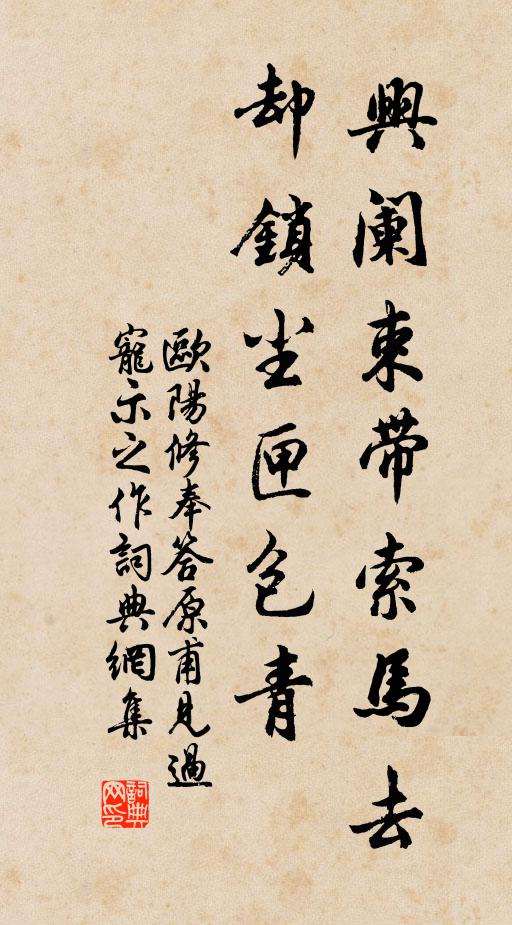 興阑束帶索馬去
却鎖尘匣包青
歐陽修奉答原甫見過
寵示之作詞典網集
詞典网印